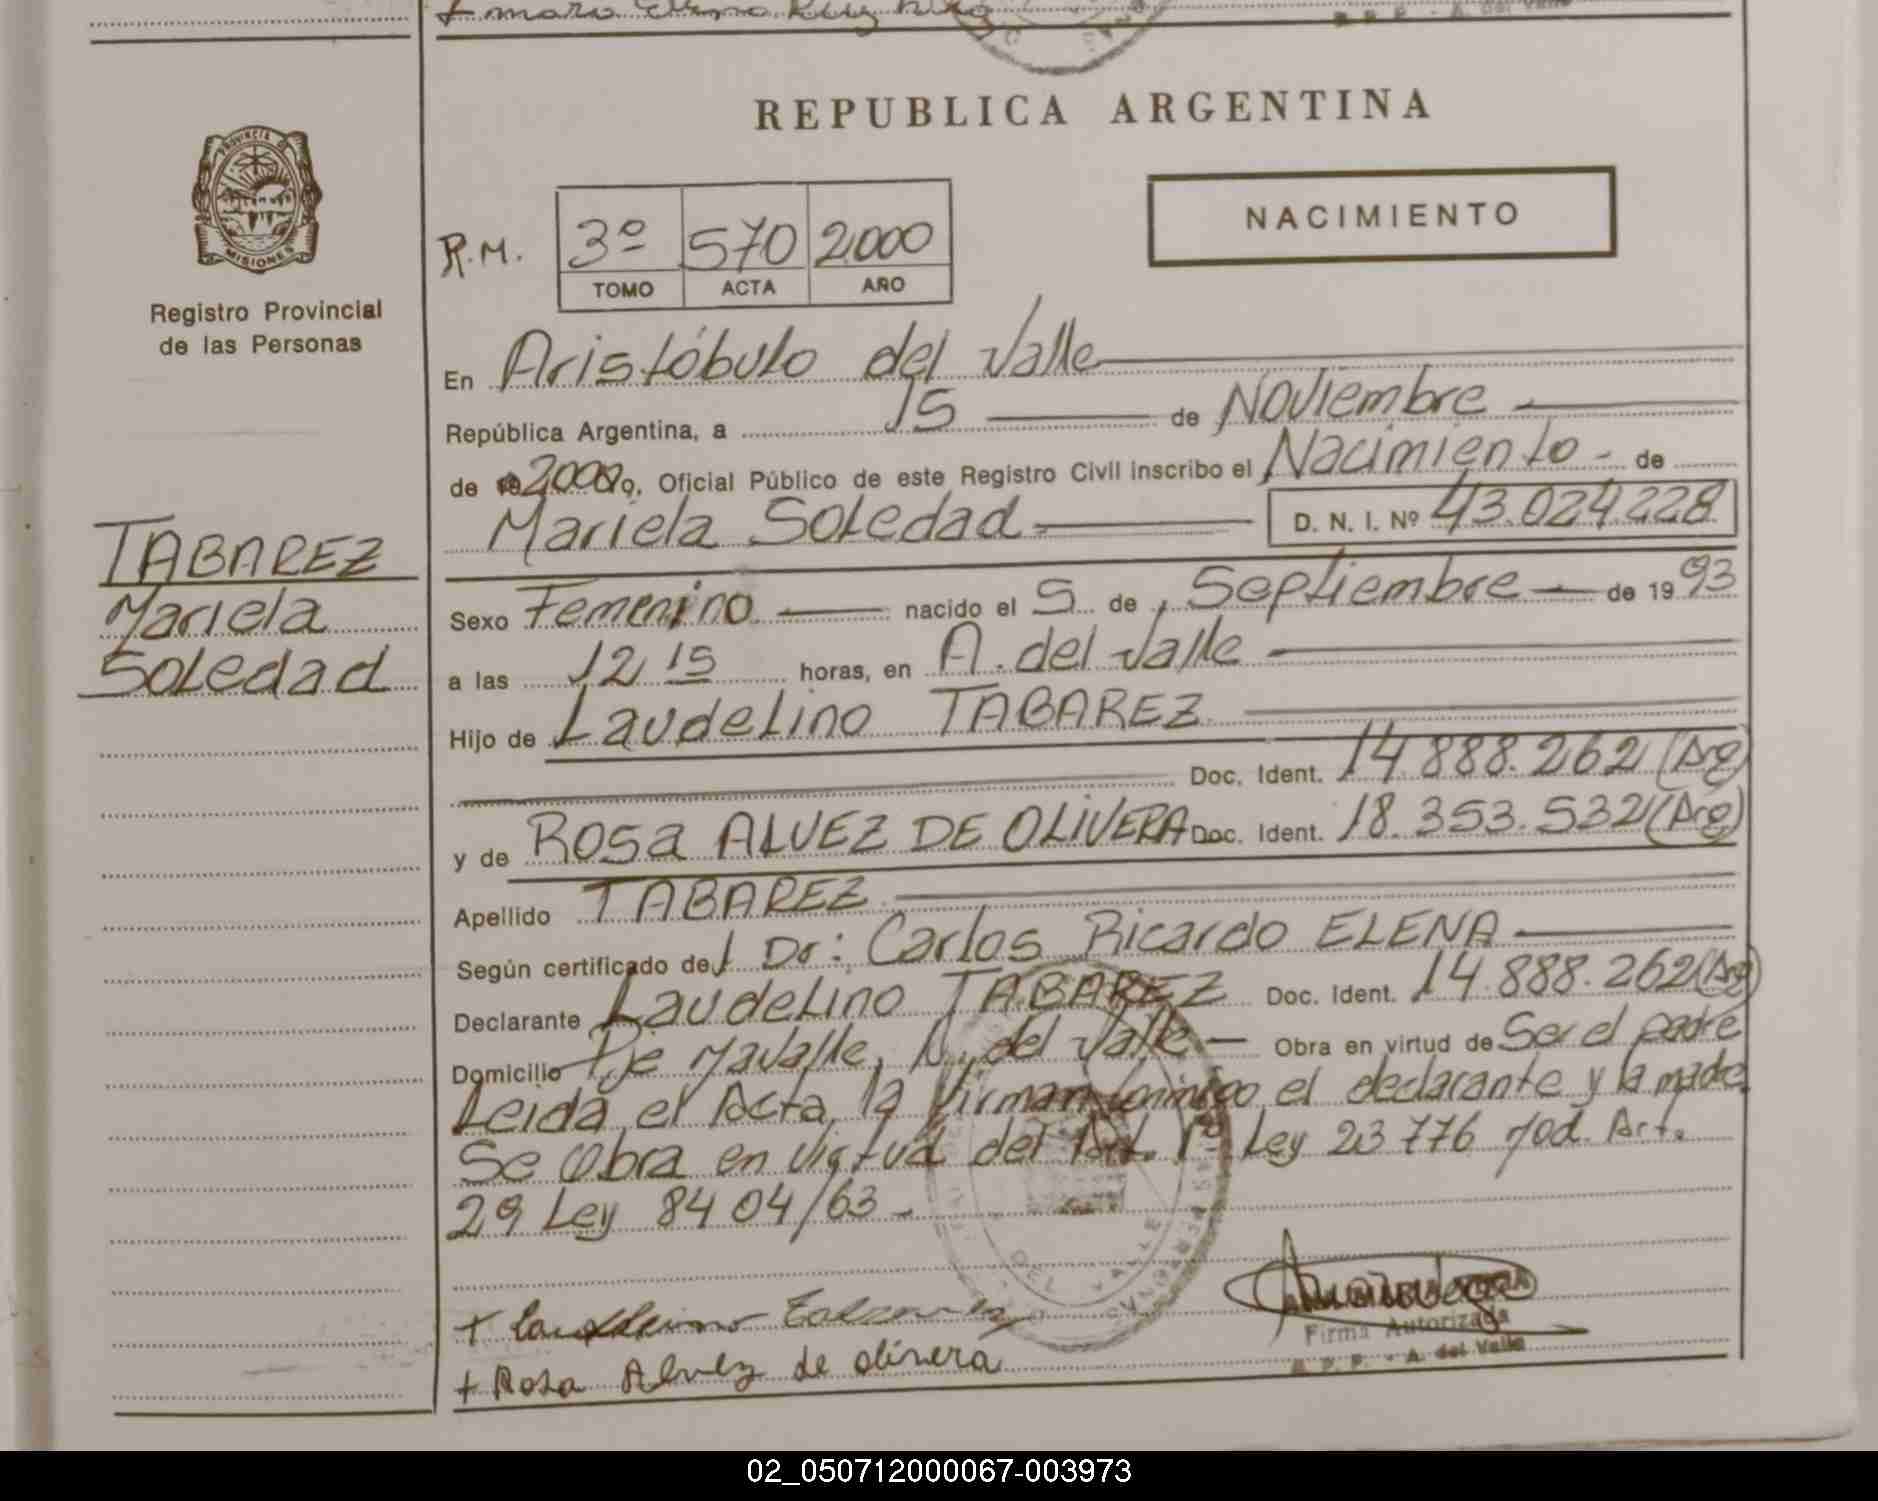 R. P. P. - A. del Valle
REPUBLICA ARGENTINA
PROVINCIA DE
MISIONES
Registro Provincial
de las Personas
NACIMIENTO
R.M. 3º 570 2000
TOMO ACTA AÑO
En Aristóbulo del Valle
República Argentina, a 15 de Noviembre
de 2000, Oficial Público de este Registro Civil inscribo el Nacimiento - de
Mariela Soledad D. N. I. Nº 43.024.228
TABAREZ
Mariela
Soledad
Sexo Femenino nacido el 5 de Septiembre de 1993
a las 12 15 horas, en A. del Valle
Hijo de Laudelino TABAREZ
Doc. Ident. 14.888.262 (Arg)
y de Rosa ALVEZ DE OLIVERA Doc. Ident. 18.353.532 (Arg)
Apellido TABAREZ
Según certificado del Dr: Carlos Ricardo ELENA
Declarante Laudelino TABAREZ Doc. Ident. 14.888.262 (Arg)
Domicilio Pje Mavalle, A. del Valle - Obra en virtud de Ser el padre
Leida el Acta, la firman conmigo el declarante y la madre.
Se Obra en Virtud del Art. 1º Ley 23776 Mod. Art.
29 Ley 8404/63 -
DEL VALLE
+ Laudelino
+ Rosa Alvez de olivera
Firma Autorizada
R. P. P. - A. del Valle
02_050712000067-003973